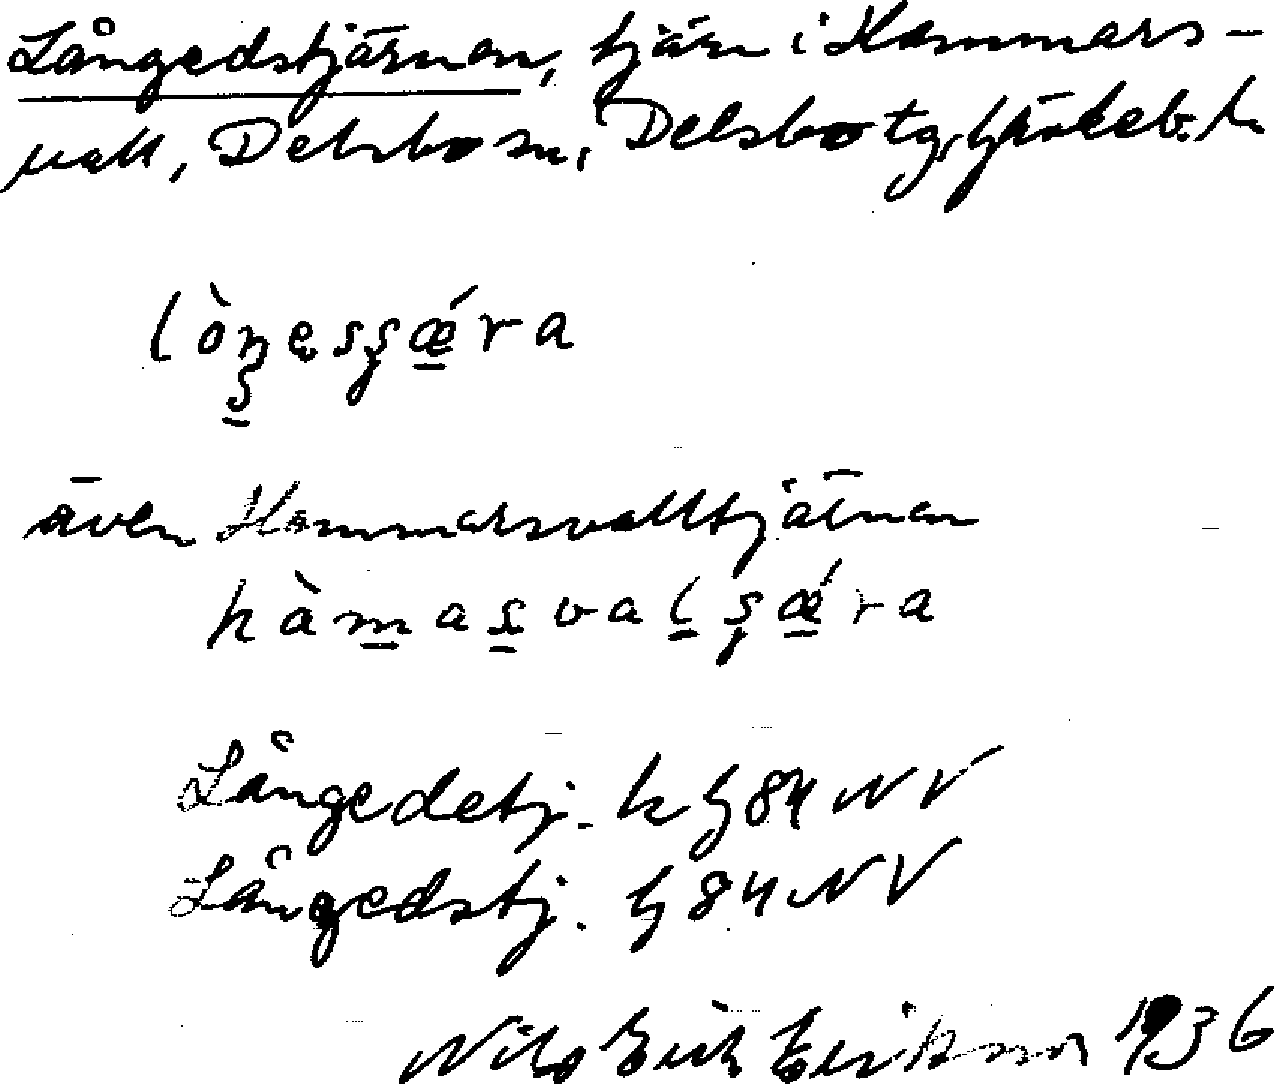 Långedstjärnen, tjärn i Hammars-
vall, Delsbo sn, Delsbo tg, Gävleb. l.
lòŋesʂǽra
även Hammarsvalltjärnen
hàmasvalʂǽra
Långedetj. k G 84 NV
Långedstj. G 84 NV
Nils Erik Erikson 1936